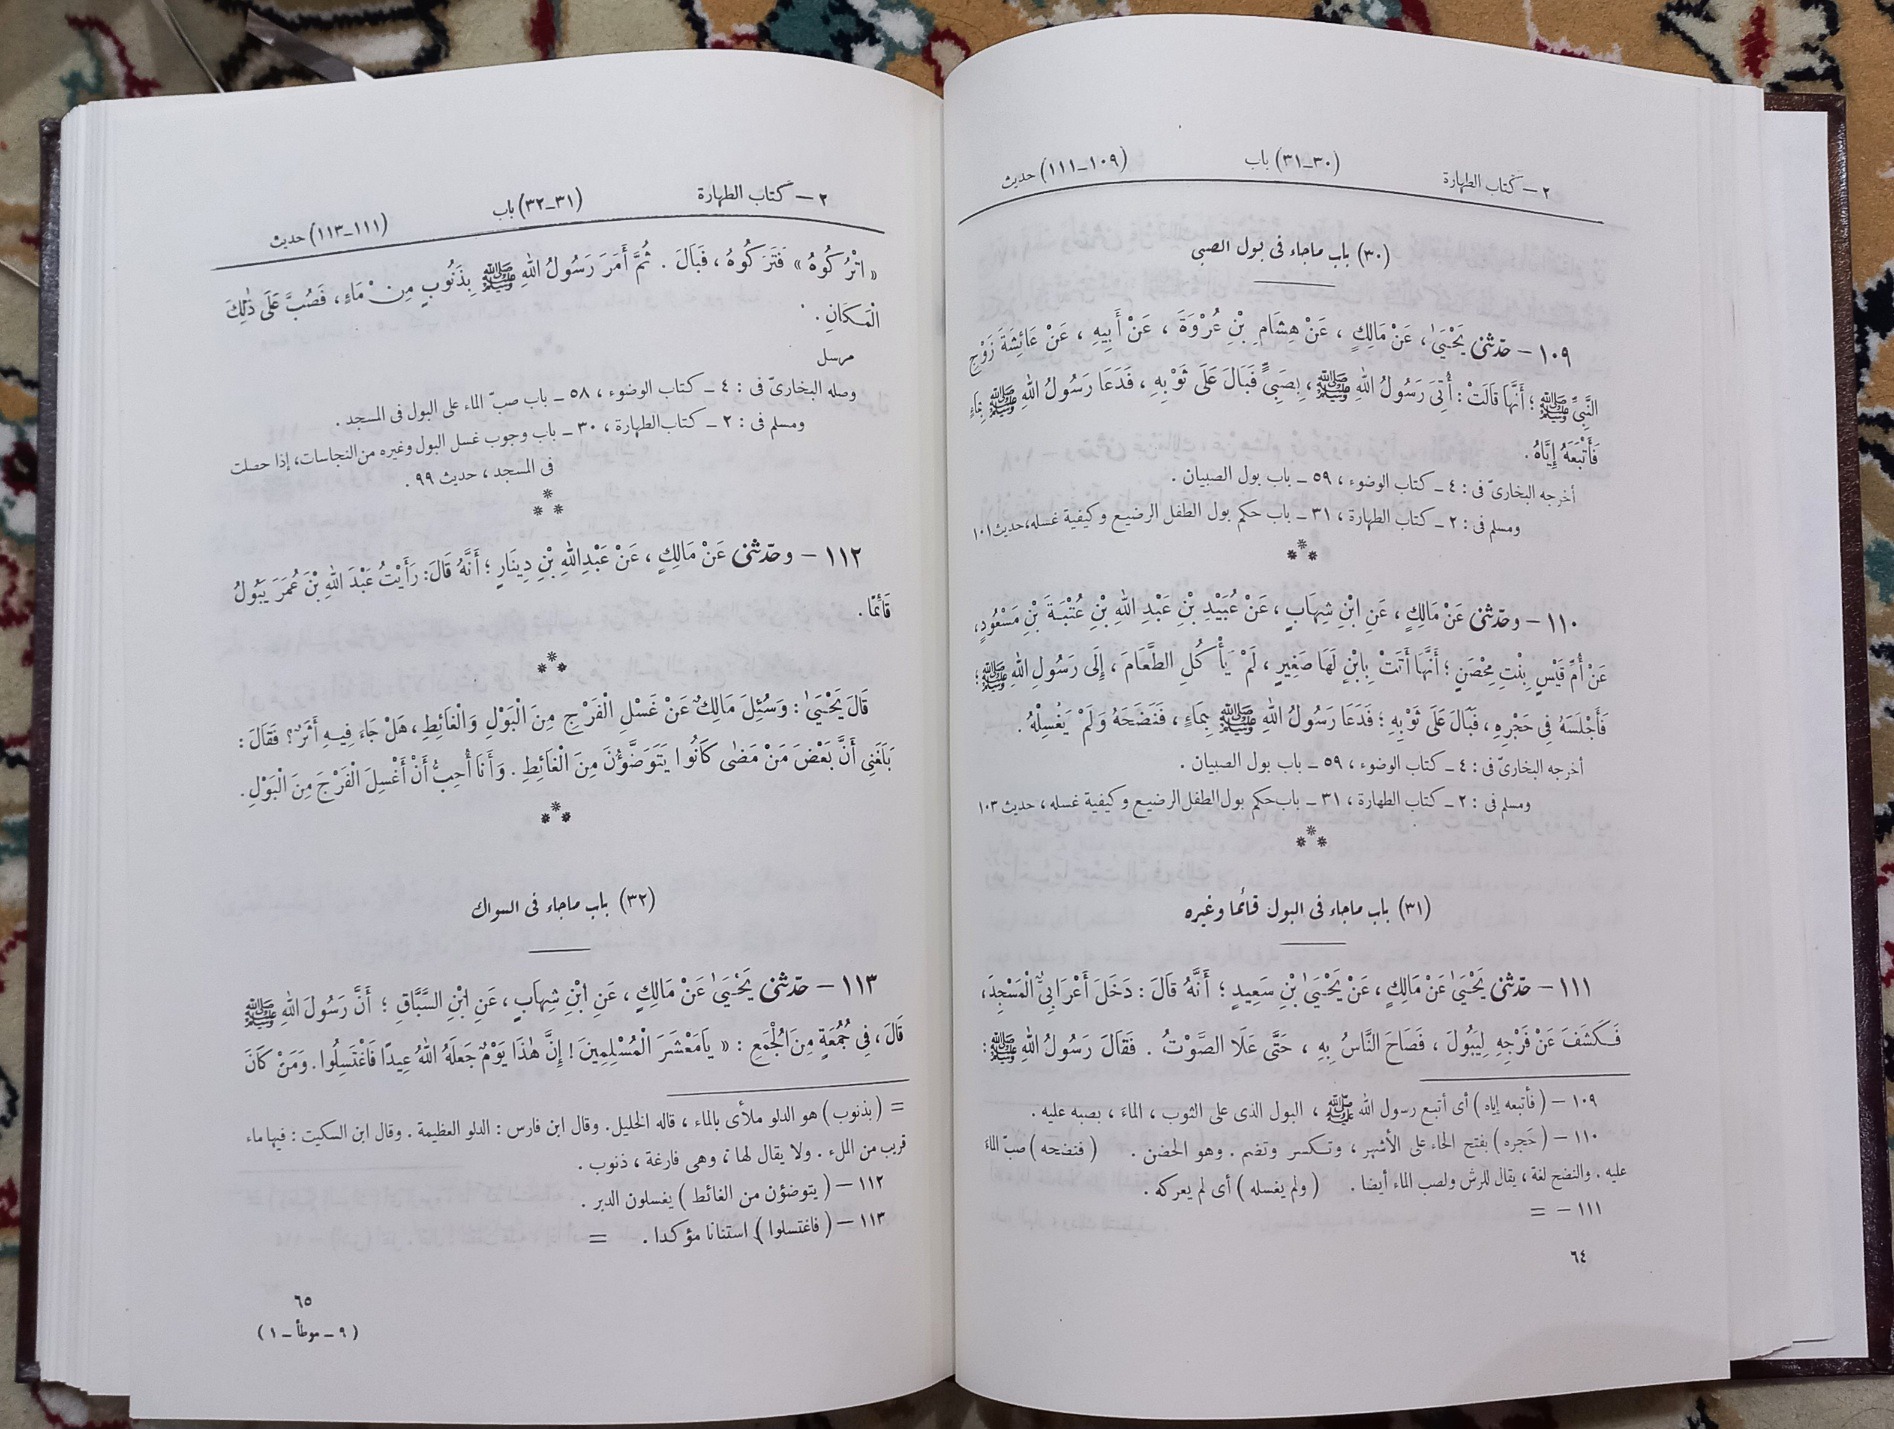 ٢ – كتاب الطهارة (٣٠–٣١) باب (١٠٩–١١١) حديث
(٣٠) باب ماجاء فى بول الصبى
١٠٩ – حدّثنى يَحْيَىٰ، عَنْ مَالِكٍ ، عَنْ هِشَامِ بْنِ عُرْوَةَ ، عَنْ أَبِيهِ ، عَنْ عَائِشَةَ زَوْجِ
النَّبِيِّ ﷺ ؛ أَنَّهَا قَالَتْ : أُتِيَ رَسُولُ اللهِ ﷺ ، بِصَبِيٍّ فَبَالَ عَلَى ثَوْبِهِ ، فَدَعَا رَسُولُ اللهِ ﷺ بِمَاءٍ
فَأَتْبَعَهُ إِيَّاهُ .
أخرجه البخارىّ فى : ٤ – كتاب الوضوء ، ٥٩ – باب بول الصبيان .
ومسلم فى : ٢ – كتاب الطهارة ، ٣١ – باب حكم بول الطفل الرضيع وكيفية غسله، حديث ١٠١
١١٠ – وحدّثنى عَنْ مَالِكٍ ، عَنِ ابْنِ شِهَابٍ ، عَنْ عُبَيْدِ بْنِ عَبْدِ اللهِ بْنِ عُتْبَةَ بْنِ مَسْعُودٍ،
عَنْ أُمِّ قَيْسٍ بِنْتِ مِحْصَنٍ ؛ أَنَّهَا أَتَتْ بِابْنٍ لَهَا صَغِيرٍ ، لَمْ يَأْكُلِ الطَّعَامَ ، إِلَى رَسُولِ اللهِ ﷺ ؛
فَأَجْلَسَهُ فِي حَجْرِهِ ، فَبَالَ عَلَى ثَوْبِهِ ؛ فَدَعَا رَسُولُ اللهِ ﷺ بِمَاءٍ ، فَنَضَحَهُ وَلَمْ يَغْسِلْهُ .
أخرجه البخارىّ فى : ٤ – كتاب الوضوء ، ٥٩ – باب بول الصبيان .
ومسلم فى : ٢ – كتاب الطهارة ، ٣١ – باب حكم بول الطفل الرضيع وكيفية غسله ، حديث ١٠٣
(٣١) باب ماجاء فى البول قائما وغيره
١١١ – حدّثنى يَحْيَىٰ عَنْ مَالِكٍ ، عَنْ يَحْيَىٰ بْنِ سَعِيدٍ ؛ أَنَّهُ قَالَ : دَخَلَ أَعْرَابِيٌّ الْمَسْجِدَ،
فَكَشَفَ عَنْ فَرْجِهِ لِيَبُولَ ، فَصَاحَ النَّاسُ بِهِ ، حَتَّى عَلَا الصَّوْتُ . فَقَالَ رَسُولُ اللهِ ﷺ :
١٠٩ – ( فأتبعه إياه ) أى أتبع رسول الله ﷺ ، البول الذى على الثوب ، الماءَ ، بصبه عليه .
١١٠ – ( حَجره ) بفتح الحاء على الأشهر ، وتكسر وتضم . وهو الحضن . ( فنضحه ) صبّ الماءَ
عليه . والنضح لغة ، يقال للرش ولصب الماء أيضا . ( ولم يغسله ) أى لم يعركه .
١١١ – =
٦٤
٢ – كتاب الطهارة (٣١–٣٢) باب (١١١–١١٣) حديث
« اتْرُكُوهُ » فَتَرَكُوهُ ، فَبَالَ . ثُمَّ أَمَرَ رَسُولُ اللهِ ﷺ بِذَنُوبٍ مِنْ مَاءٍ ، فَصُبَّ عَلَى ذٰلِكَ
الْمَكَانِ .
مرسل
وصله البخارىّ فى : ٤ – كتاب الوضوء ، ٥٨ – باب صبّ الماء على البول فى المسجد .
ومسلم فى : ٢ – كتاب الطهارة ، ٣٠ – باب وجوب غسل البول وغيره من النجاسات، إذا حصلت
فى المسجد ، حديث ٩٩ .
١١٢ – وحدّثنى عَنْ مَالِكٍ ، عَنْ عَبْدِ اللهِ بْنِ دِينَارٍ ؛ أَنَّهُ قَالَ: رَأَيْتُ عَبْدَ اللهِ بْنَ عُمَرَ يَبُولُ
قَائِمًا .
قَالَ يَحْيَىٰ : وَسُئِلَ مَالِكٌ عَنْ غَسْلِ الْفَرْجِ مِنَ الْبَوْلِ وَالْغَائِطِ ، هَلْ جَاءَ فِيهِ أَثَرٌ ؟ فَقَالَ :
بَلَغَنِي أَنَّ بَعْضَ مَنْ مَضٰى كَانُوا يَتَوَضَّؤُنَ مِنَ الْغَائِطِ . وَأَنَا أُحِبُّ أَنْ أَغْسِلَ الْفَرْجَ مِنَ الْبَوْلِ .
(٣٢) باب ماجاء فى السواك
١١٣ – حدّثنى يَحْيَىٰ عَنْ مَالِكٍ ، عَنِ ابْنِ شِهَابٍ ، عَنِ ابْنِ السَّبَّاقِ ؛ أَنَّ رَسُولَ اللهِ ﷺ
قَالَ ، فِي جُمُعَةٍ مِنَ الْجُمَعِ : « يَا مَعْشَرَ الْمُسْلِمِينَ ! إِنَّ هٰذَا يَوْمٌ جَعَلَهُ اللهُ عِيدًا فَاغْتَسِلُوا . وَمَنْ كَانَ
= ( بذنوب ) هو الدلو ملأى بالماء ، قاله الخليل. وقال ابن فارس : الدلو العظيمة . وقال ابن السكيت : فيها ماء
قريب من الملء . ولا يقال لها ، وهى فارغة ، ذنوب .
١١٢ – ( يتوضؤن من الغائط ) يغسلون الدبر .
١١٣ – ( فاغتسلوا ) استنانا مؤكدا . =
٦٥
( ٩ – موطأ – ١ )